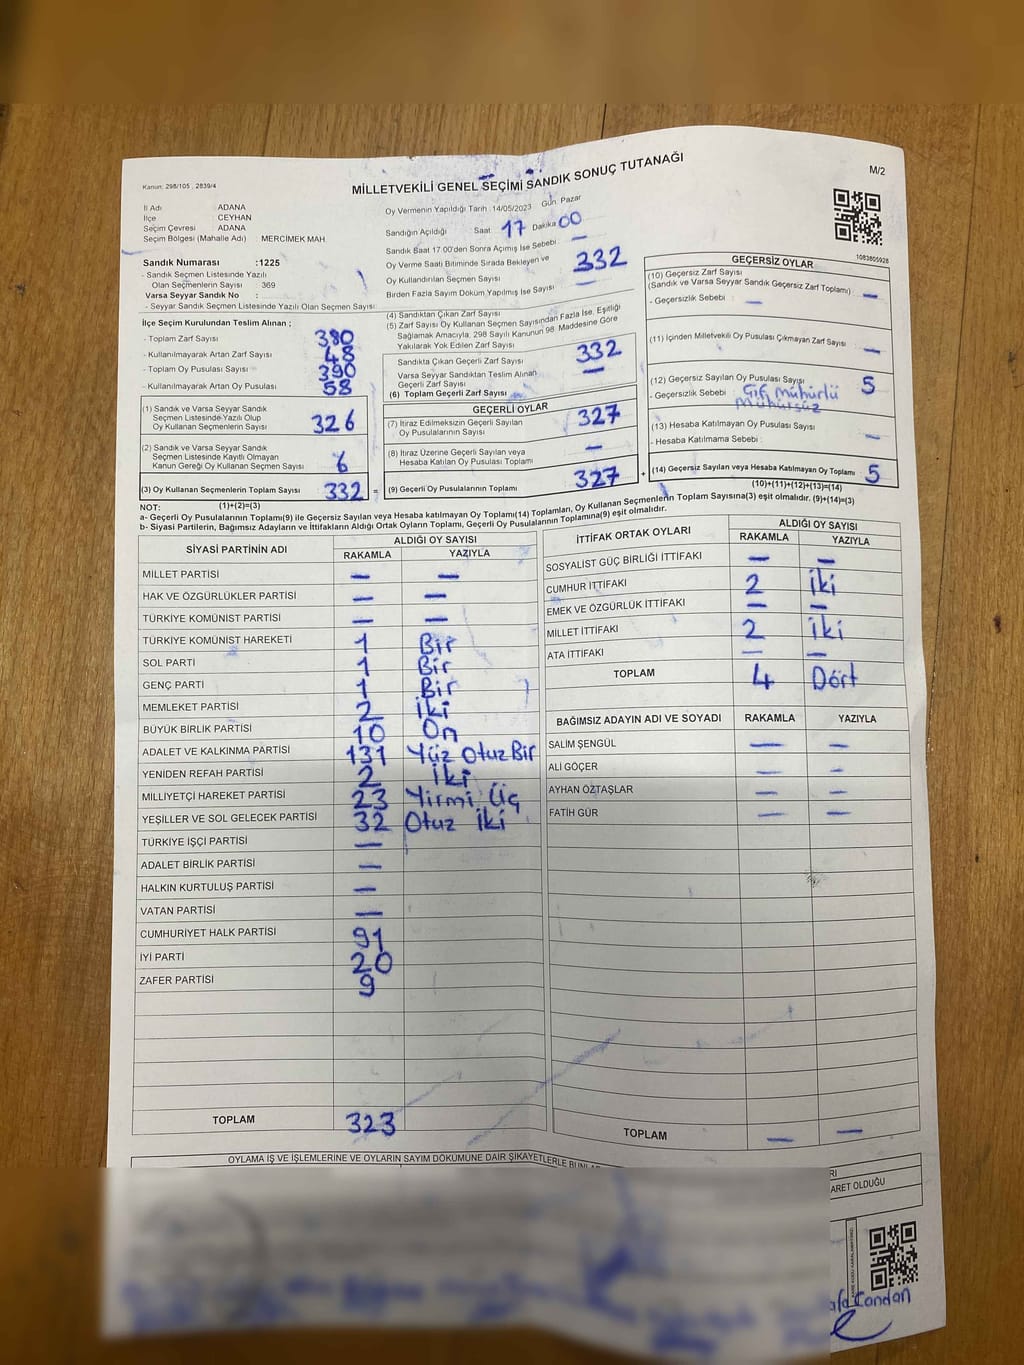 Kanun: 298/105 , 2839/4
MİLLETVEKİLİ GENEL SEÇİMİ SANDIK SONUÇ TUTANAĞI
M/2
İl Adı ADANA
İlçe CEYHAN
Seçim Çevresi ADANA
Seçim Bölgesi (Mahalle Adı) MERCİMEK MAH.
Sandık Numarası :1225
- Sandık Seçmen Listesinde Yazılı
Olan Seçmenlerin Sayısı 369
Varsa Seyyar Sandık No :
- Seyyar Sandık Seçmen Listesinde Yazılı Olan Seçmen Sayısı:
Oy Vermenin Yapıldığı Tarih :14/05/2023 Gün: Pazar
Sandığın Açıldığı Saat 17 Dakika 00
Sandık Saat 17.00'den Sonra Açımış İse Sebebi: —
Oy Verme Saati Bitiminde Sırada Bekleyen ve
Oy Kullandırılan Seçmen Sayısı 332
Birden Fazla Sayım Döküm Yapılmış İse Sayısı —
1083805928
İlçe Seçim Kurulundan Teslim Alınan ;
- Toplam Zarf Sayısı 380
- Kullanılmayarak Artan Zarf Sayısı 48
- Toplam Oy Pusulası Sayısı 390
- Kullanılmayarak Artan Oy Pusulası 58
(1) Sandık ve Varsa Seyyar Sandık
Seçmen Listesinde Yazılı Olup
Oy Kullanan Seçmenlerin Sayısı 326
(2) Sandık ve Varsa Seyyar Sandık
Seçmen Listesinde Kayıtlı Olmayan
Kanun Gereği Oy Kullanan Seçmen Sayısı 6
(3) Oy Kullanan Seçmenlerin Toplam Sayısı 332 =
(1)+(2)=(3)
(4) Sandıktan Çıkan Zarf Sayısı
(5) Zarf Sayısı Oy Kullanan Seçmen Sayısından Fazla İse, Eşitliği
Sağlamak Amacıyla, 298 Sayılı Kanunun 98. Maddesine Göre
Yakılarak Yok Edilen Zarf Sayısı
Sandıkta Çıkan Geçerli Zarf Sayısı 332
Varsa Seyyar Sandıktan Teslim Alınan
Geçerli Zarf Sayısı —
(6) Toplam Geçerli Zarf Sayısı
GEÇERLİ OYLAR
(7) İtiraz Edilmeksizin Geçerli Sayılan
Oy Pusulalarının Sayısı 327
(8) İtiraz Üzerine Geçerli Sayılan veya
Hesaba Katılan Oy Pusulası Toplamı —
(9) Geçerli Oy Pusulalarının Toplamı 327 +
GEÇERSİZ OYLAR
(10) Geçersiz Zarf Sayısı
(Sandık ve Varsa Seyyar Sandık Geçersiz Zarf Toplamı) —
- Geçersizlik Sebebi : —
(11) İçinden Milletvekili Oy Pusulası Çıkmayan Zarf Sayısı —
(12) Geçersiz Sayılan Oy Pusulası Sayısı 5
- Geçersizlik Sebebi : Çif Mühürlü
Mühürsüz
(13) Hesaba Katılmayan Oy Pusulası Sayısı —
- Hesaba Katılmama Sebebi :
(14) Geçersiz Sayılan veya Hesaba Katılmayan Oy Toplamı 5
(10)+(11)+(12)+(13)=(14)
NOT:
a- Geçerli Oy Pusulalarının Toplamı(9) ile Geçersiz Sayılan veya Hesaba katılmayan Oy Toplamı(14) Toplamları, Oy Kullanan Seçmenlerin Toplam Sayısına(3) eşit olmalıdır. (9)+(14)=(3)
b- Siyasi Partilerin, Bağımsız Adayların ve İttifakların Aldığı Ortak Oyların Toplamı, Geçerli Oy Pusulalarının Toplamına(9) eşit olmalıdır.
SİYASİ PARTİNİN ADI ALDIĞI OY SAYISI
RAKAMLA YAZIYLA
MİLLET PARTİSİ — —
HAK VE ÖZGÜRLÜKLER PARTİSİ — —
TÜRKİYE KOMÜNİST PARTİSİ — —
TÜRKİYE KOMÜNİST HAREKETİ 1 Bir
SOL PARTİ 1 Bir
GENÇ PARTİ 1 Bir
MEMLEKET PARTİSİ 2 İki
BÜYÜK BİRLİK PARTİSİ 10 On
ADALET VE KALKINMA PARTİSİ 131 Yüz Otuz Bir
YENİDEN REFAH PARTİSİ 2 İki
MİLLİYETÇİ HAREKET PARTİSİ 23 Yirmi Üç
YEŞİLLER VE SOL GELECEK PARTİSİ 32 Otuz İki
TÜRKİYE İŞÇİ PARTİSİ —
ADALET BİRLİK PARTİSİ —
HALKIN KURTULUŞ PARTİSİ —
VATAN PARTİSİ —
CUMHURİYET HALK PARTİSİ 91
İYİ PARTİ 20
ZAFER PARTİSİ 9
TOPLAM 323
İTTİFAK ORTAK OYLARI ALDIĞI OY SAYISI
RAKAMLA YAZIYLA
SOSYALİST GÜÇ BİRLİĞİ İTTİFAKI — —
CUMHUR İTTİFAKI 2 İki
EMEK VE ÖZGÜRLÜK İTTİFAKI — —
MİLLET İTTİFAKI 2 İki
ATA İTTİFAKI — —
TOPLAM 4 Dört
BAĞIMSIZ ADAYIN ADI VE SOYADI RAKAMLA YAZIYLA
SALİM ŞENGÜL — —
ALİ GÖÇER — —
AYHAN ÖZTAŞLAR — —
FATİH GÜR — —
TOPLAM — —
OYLAMA İŞ VE İŞLEMLERİNE VE OYLARIN SAYIM DÖKÜMÜNE DAİR ŞİKAYETLERLE
ARET OLDUĞU
Candan